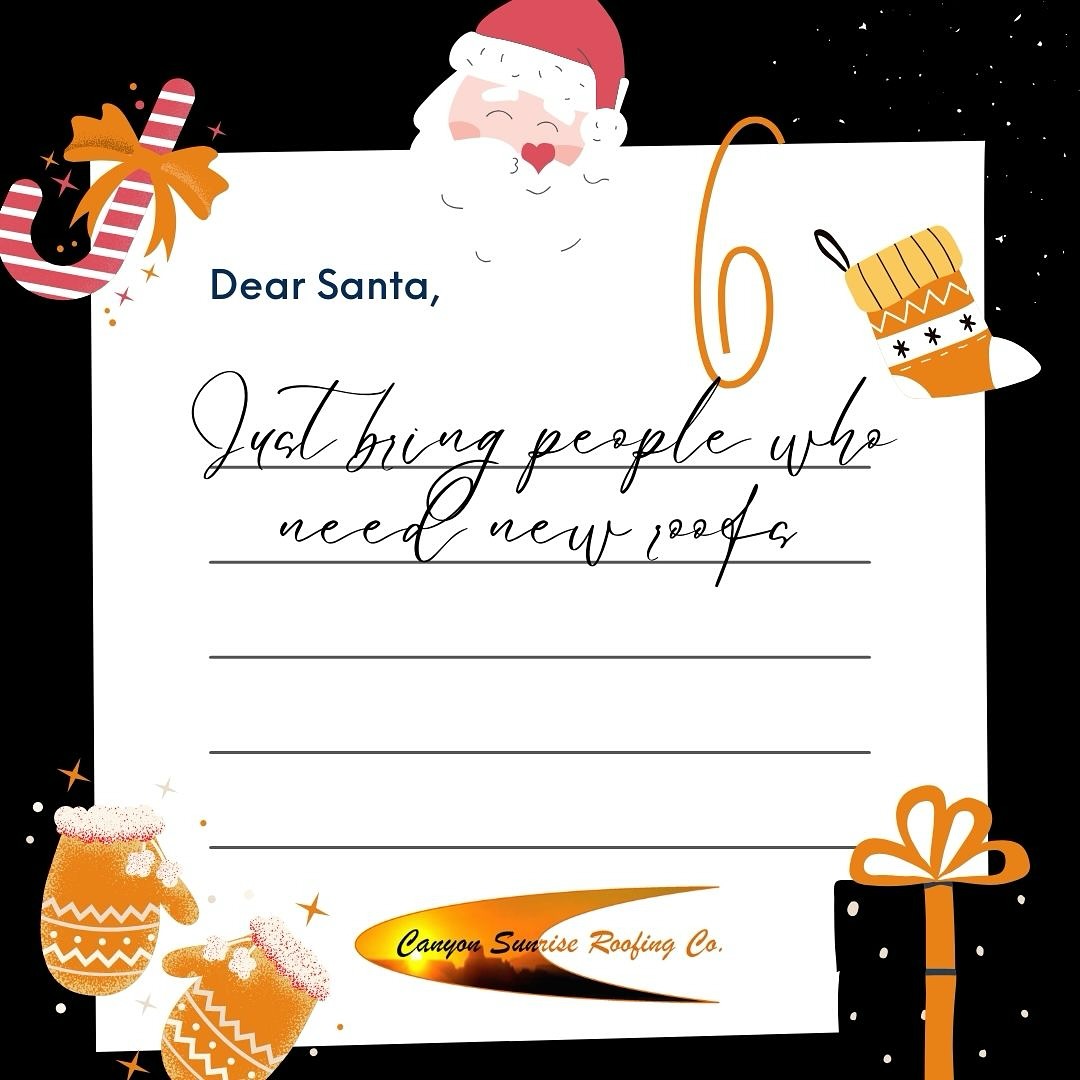 Dear Santa,
Just bring people who
need new roofs
Canyon Sunrise Roofing Co.